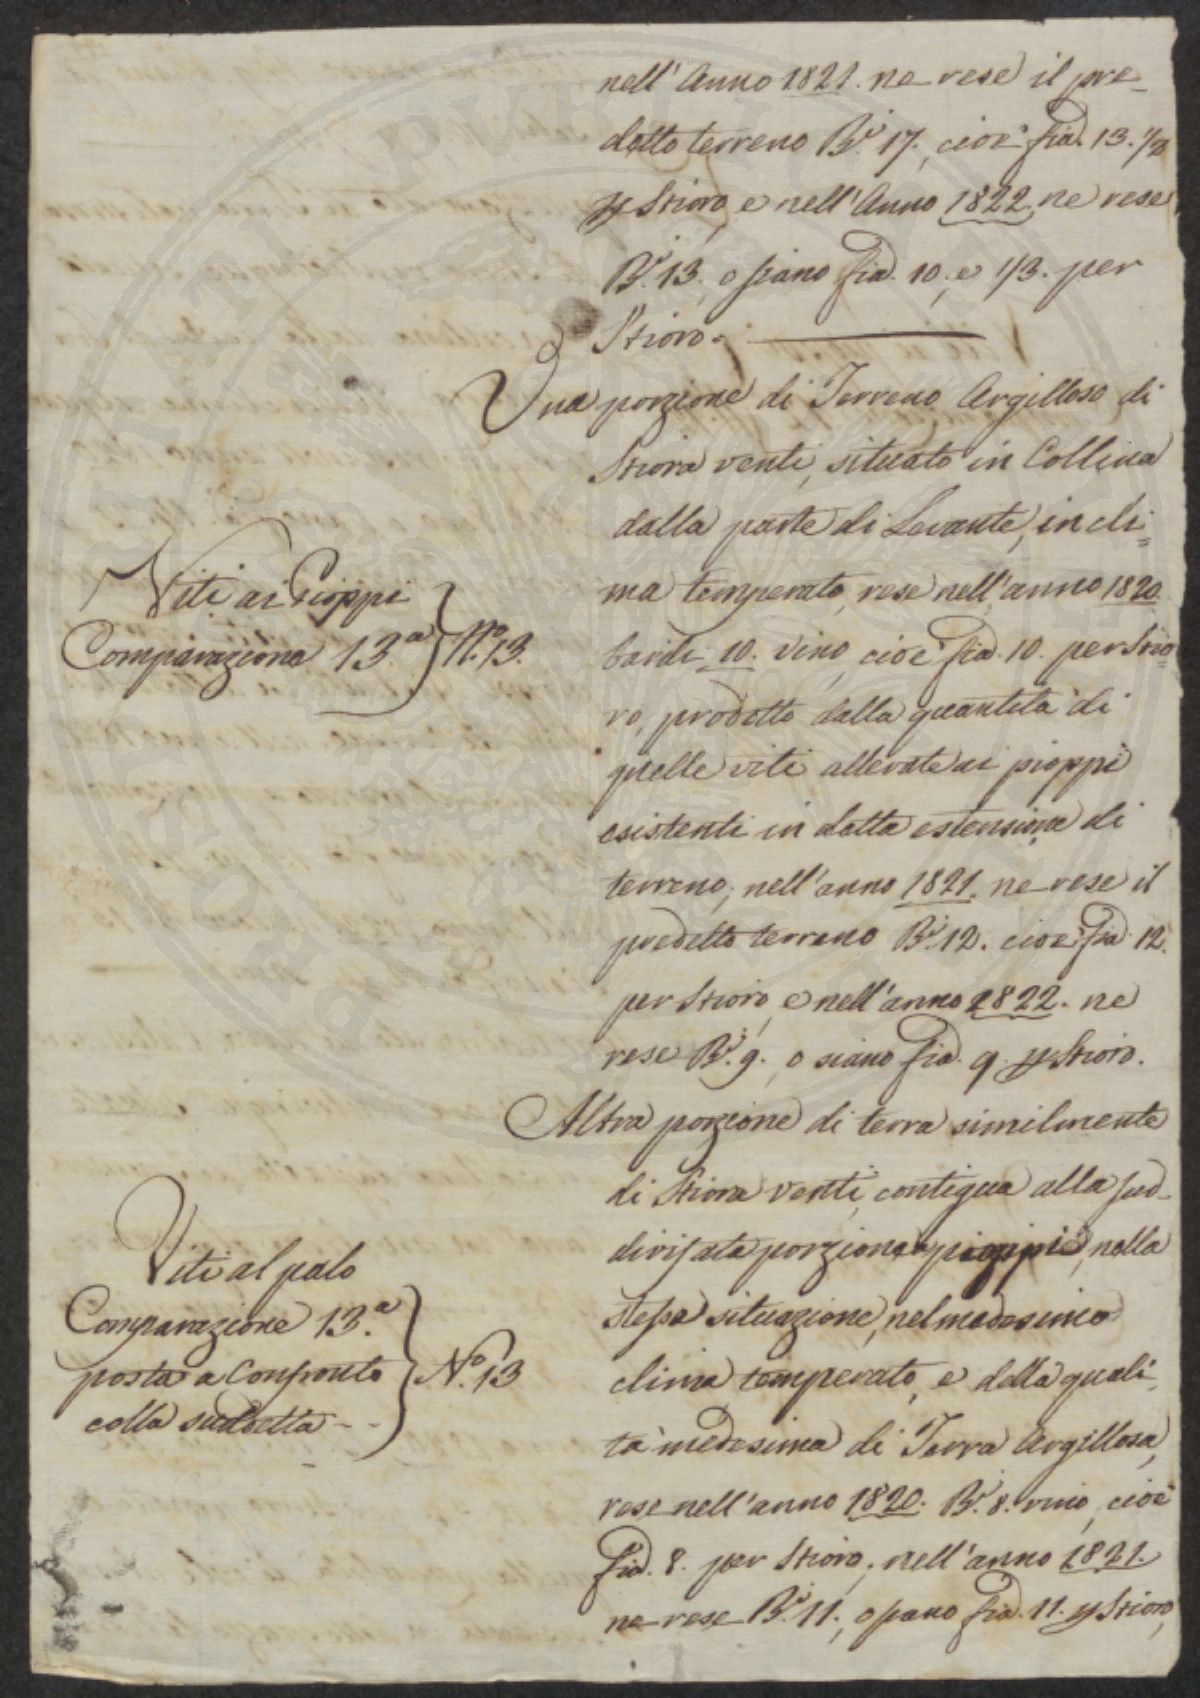 nell'Anno 1821. ne rese il pre=
detto terreno B.i 17., cioè fia. 13. 1/2
p Stioro, e nell'Anno 1822, ne rese
B.i 13., o siano fia. 10., e 1/3. per
Stioro.
Una porzione di Terreno Argilloso di
Stiora venti, situato in Collina
dalla parte di Levante, in cli=
ma temperato, rese nell'anno 1820.
barili 10. vino, cioè fia. 10. per Stio=
ro, prodotto dalla quantità di
quelle viti allevate ai pioppi
esistenti in detta estensione di
terreno; nell'anno 1821. ne rese il
predetto terreno B.i 12. cioè fia. 12.
per Stioro, e nell'anno 1822. ne
rese B.i 9., o siano fia. 9. p Stioro.
Viti ai Pioppi
Comparazione 13.a } N.o 13.
Altra porzione di terra similmente
di Stiora venti, contigua alla sud=
divisata porzione a pioppi, nella
stessa situazione, nel medesimo
clima temperato, e della quali=
tà medesima di Terra Argillosa,
rese nell'anno 1820. B.i 8. vino, cioè
fia. 8. per Stioro; nell'anno 1821.
ne rese B.i 11., o siano fia. 11. p Stioro,
Viti al palo
Comparazione 13.a
posta a Confronto } N.o 13
colla suddetta - -